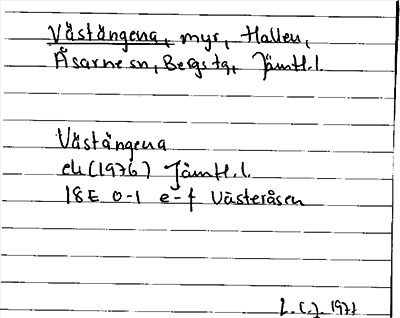 Västängena, myr, Hallen,
Åsarne sn, Bergs tg, Jämtl. l.
Västängena
ek (1976) Jämtl. l.
18E 0-1 e-f Västeråsen
L.C.J. 1977